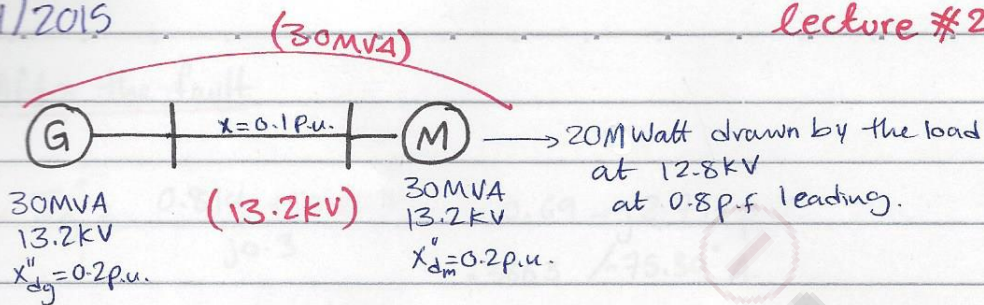 1/2015
lecture #2
(30MVA)
G
x=0.1p.u.
M
20MWatt drawn by the load
at 12.8kV
at 0.8p.f leading.
30MVA
13.2kV
X"dg=0.2p.u.
(13.2kV)
30MVA
13.2kV
X"dm=0.2p.u.